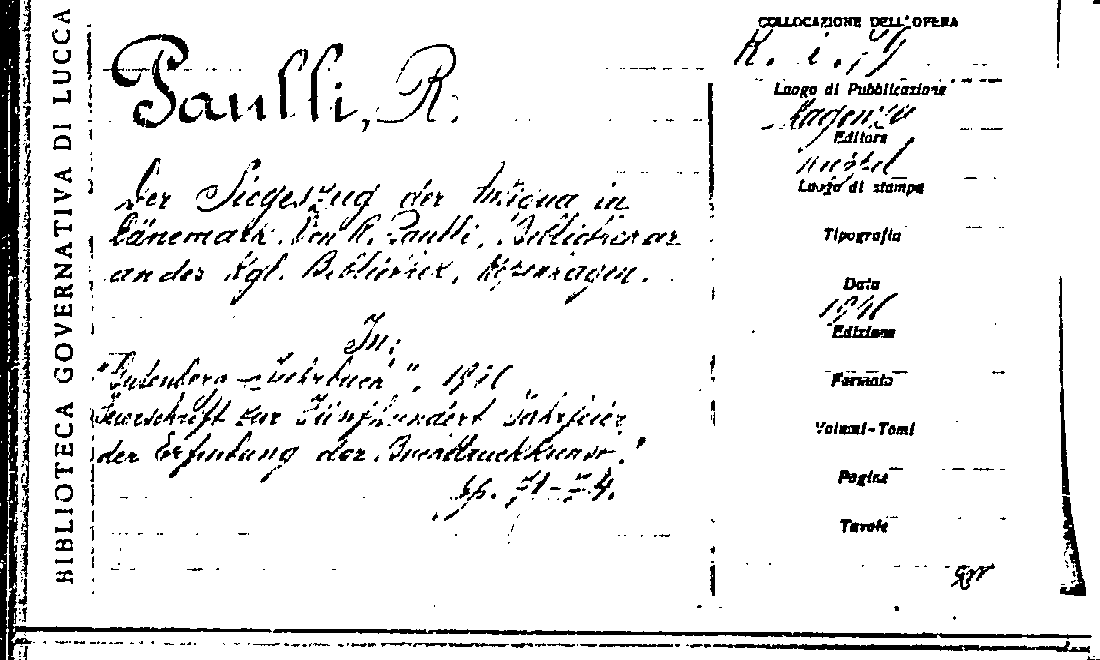 BIBLIOTECA GOVERNATIVA DI LUCCA
Paulli, R.
Der Siegeszug der Antiqua in
Dänemark. Von R. Paulli, Bibliothekar
an der Kgl. Bibliothek, Kopenhagen.
In:
"Gutenberg-Jahrbuch", 1940
Feierschrift zur Fünfhundert Jahrfeier
der Erfindung der Buchdruckkunst."
pp. 71-74.
COLLOCAZIONE DELL'OPERA
R. i. 79
Luogo di Pubblicazione
Magonza
Editore
Luogo di stampa
Tipografia
Data
1940
Edizione
Formato
Volumi-Tomi
Pagine
Tavole